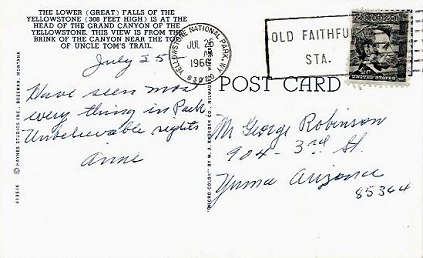 THE LOWER (GREAT) FALLS OF THE
YELLOWSTONE (308 FEET HIGH) IS AT THE
HEAD OF THE GRAND CANYON OF THE
YELLOWSTONE. THIS VIEW IS FROM THE
BRINK OF THE CANYON NEAR THE TOP
OF UNCLE TOM'S TRAIL.
July 25
Have seen most
every thing in Park.
Unbelievable sights
Anne
© HAYNES STUDIOS INC., BOZEMAN, MONTANA
YELLOWSTONE NATIONAL PARK, WYO.
JUL 26
AM
1966
OLD FAITHFUL
STA.
UNITED STATES
POST CARD
Mr George Robinson
904 - 3rd St.
Yuma Arizona
85364